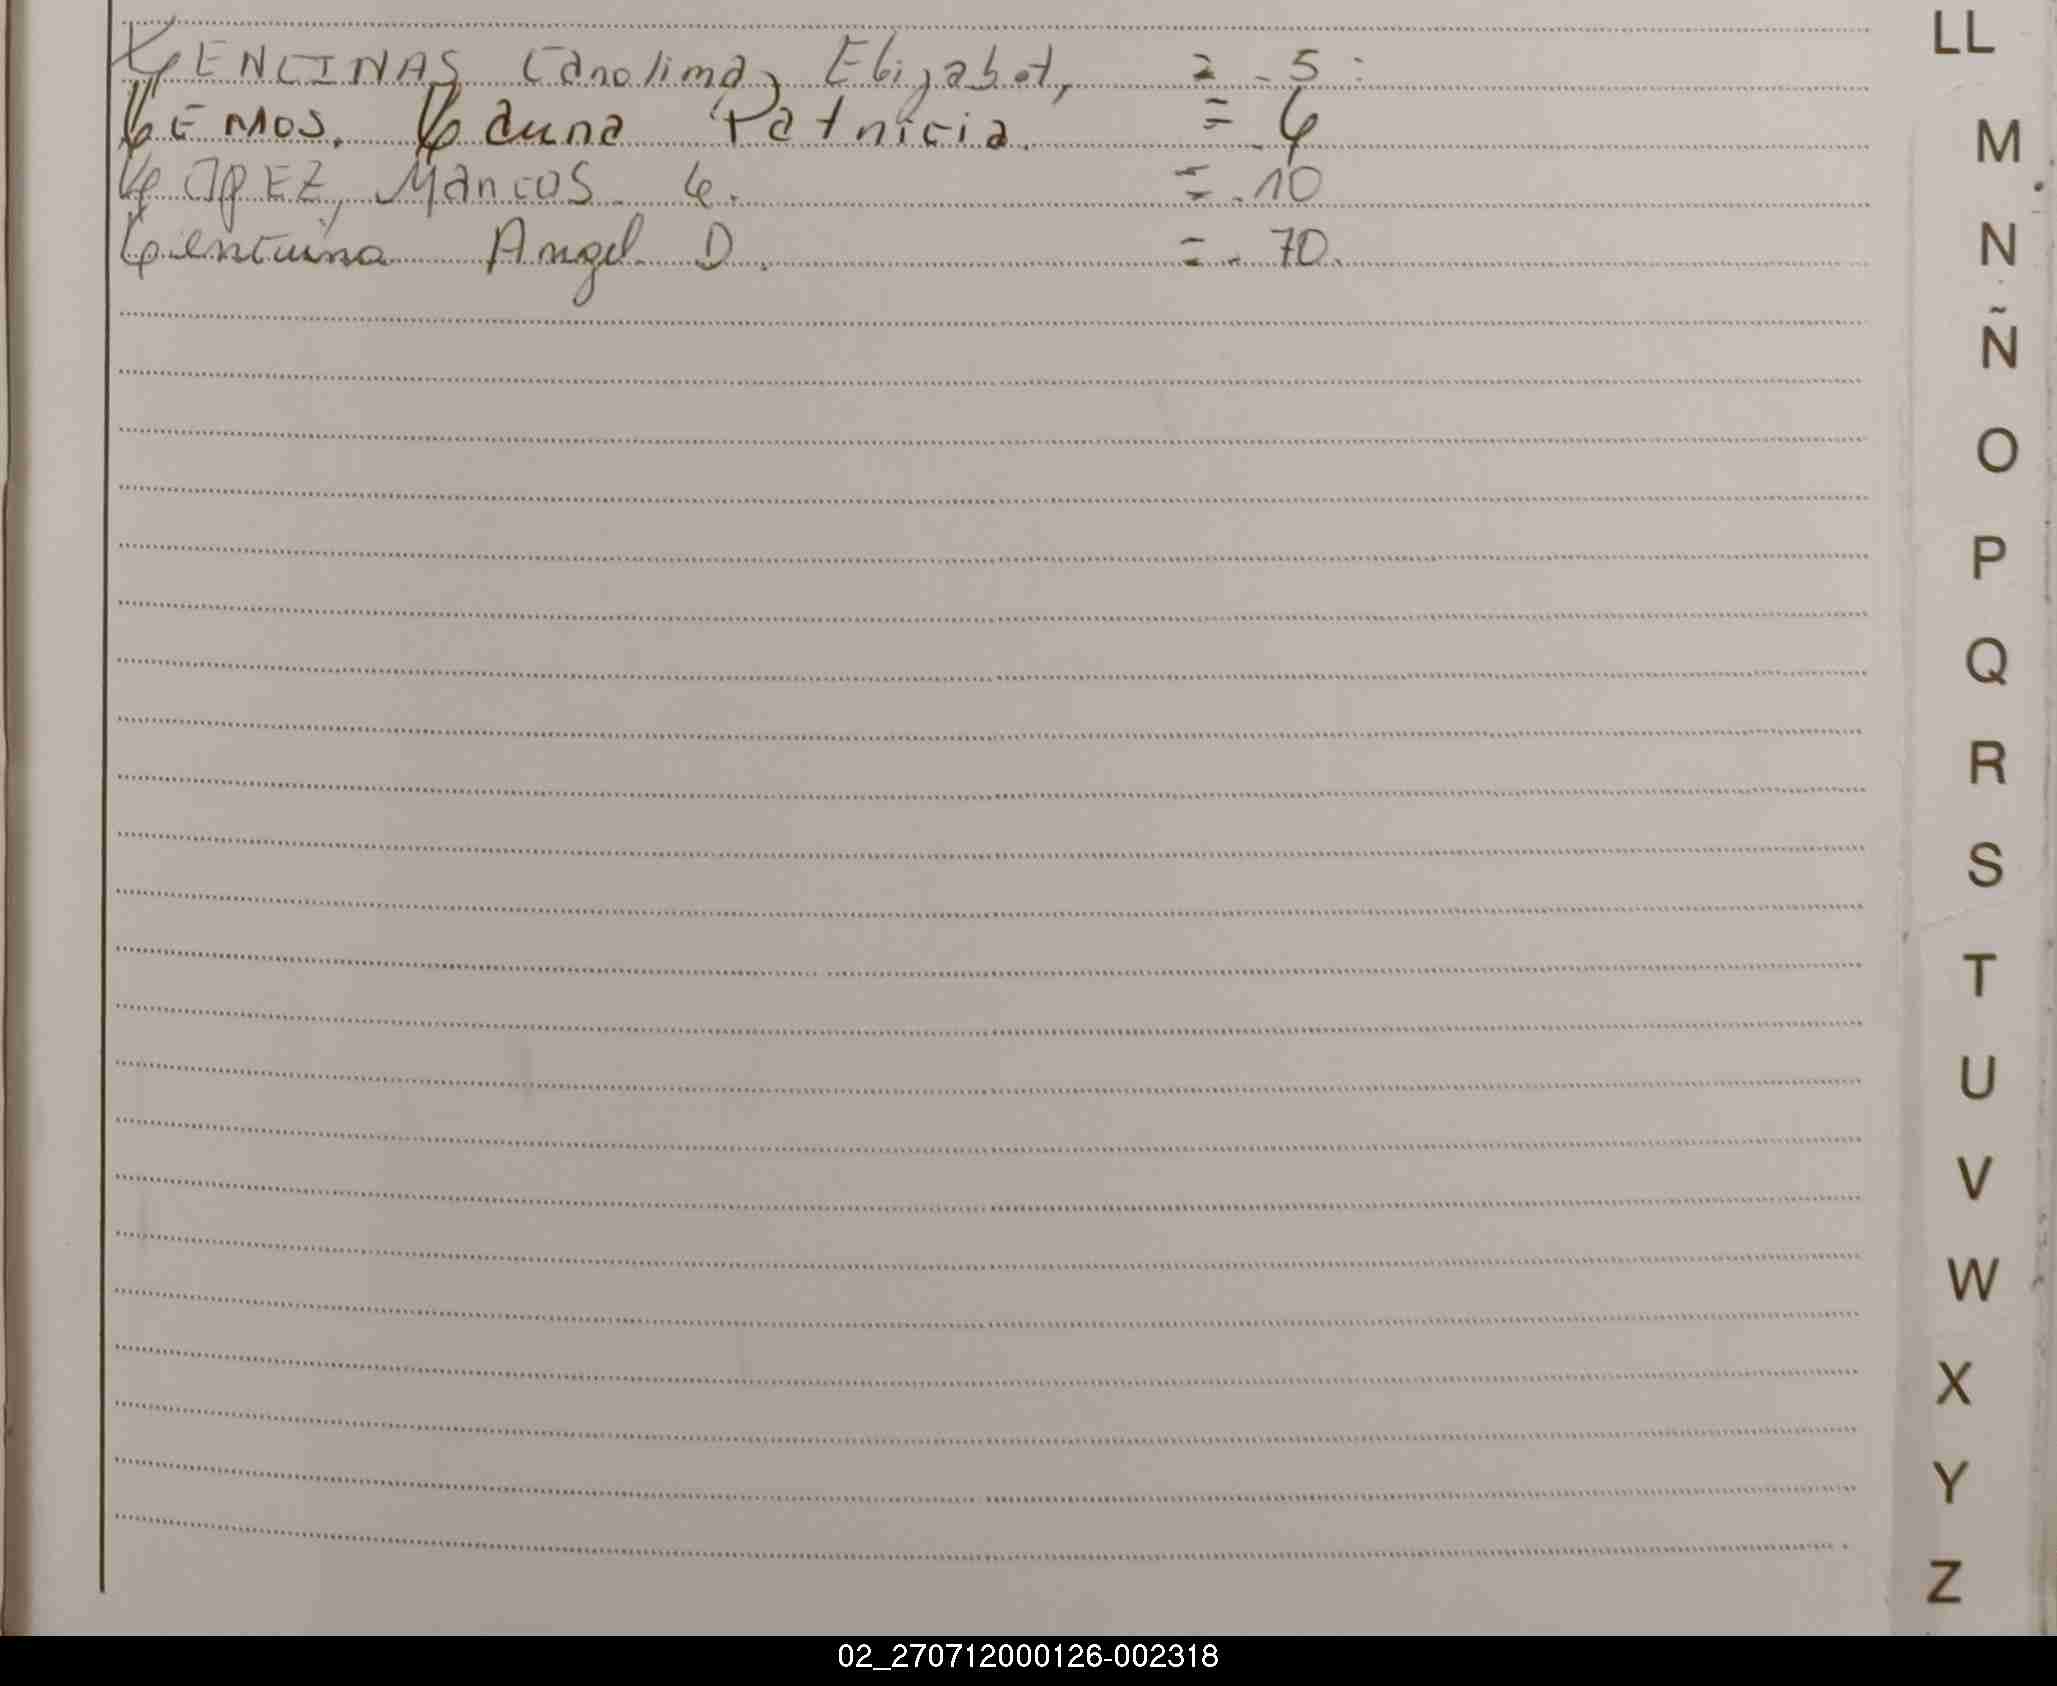 LENCINAS Carolina, Elizabet, = . 5 :
LEMOS. Laura Patricia. = . 6
LOPEZ, Marcos L. = . 10
Lentuina Angel D. = . 70.
LL
M
N
Ñ
O
P
Q
R
S
T
U
V
W
X
Y
Z
02_270712000126-002318